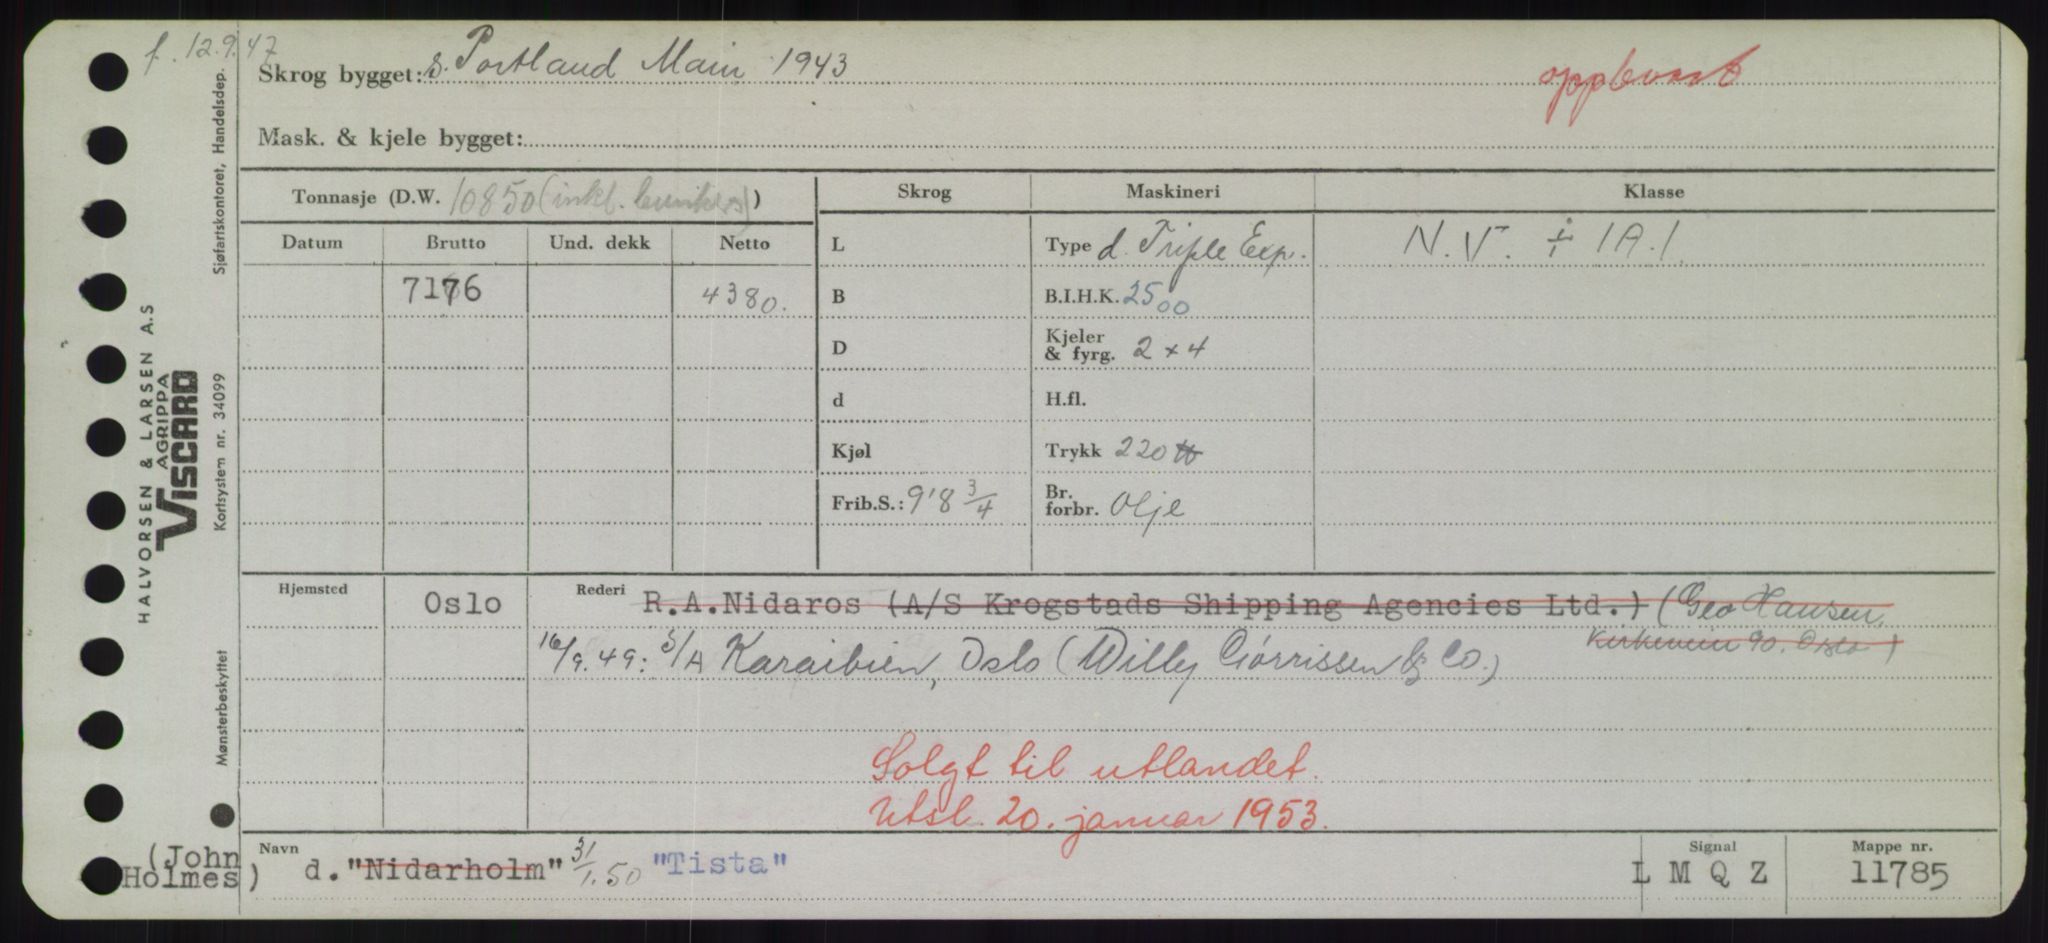 f. 12.9.47
Skrog bygget: s. Portland Main 1943
Mask. & kjele bygget:
Tonnasje (D.W. 10850 (inkl. bunkers))
Skrog Maskineri Klasse
Datum Brutto Und. dekk Netto
L Type d. Triple Exp. N.V. + 1A.1.
7176 4380. B B.I.H.K. 2500
D Kjeler & fyrg. 2 x 4
d H.fl.
Kjøl Trykk 220 lb
Frib.S.: 9'8 3/4 Br. forbr. Olje
Hjemsted Oslo Rederi R.A.Nidaros (A/S Krogstads Shipping Agencies Ltd.) (Geo Hansen,
Kirkeveien 90. Oslo)
16/9.49: S/A Karaibien, Oslo (Willy Giørrissen & Co.)
Solgt til utlandet.
Utsl. 20. januar 1953.
(John Holmes)
Navn d."Nidarholm" 31/1.50 "Tista"
Signal L M Q Z
Mappe nr. 11785
HALVORSEN & LARSEN A.S
AGRIPPA
VISCARD
Mønsterbeskyttet Kortsystem nr. 34099 Sjøfartskontoret, Handelsdep.